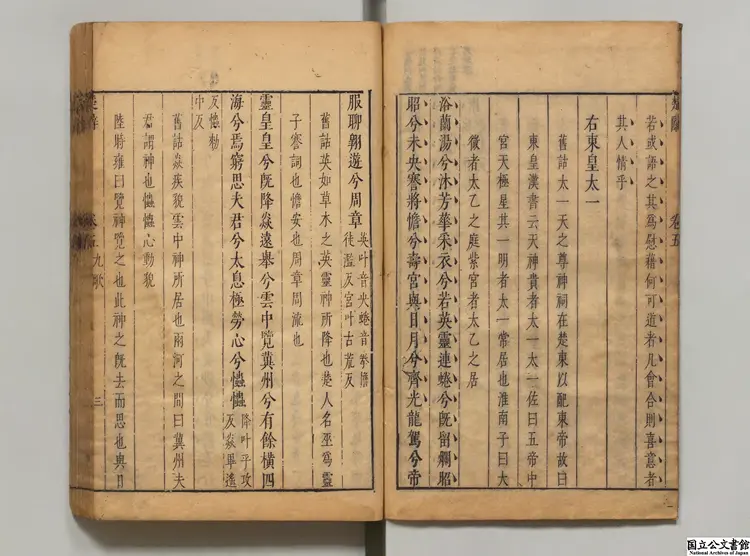 若或語之其爲慰藉何可道者凡會合則喜意者
其人情乎
右東皇太一
舊詁太一天之尊神祠在楚東以配東帝故曰
東皇漢書云天神貴者太一太一佐曰五帝中
宮天極星其一明者太一常居也淮南子曰太
微者太乙之庭紫宮者太乙之居
浴蘭湯兮沐芳華采衣兮若英靈連蜷兮既留爛昭
昭兮未央謇將憺兮壽宮與日月兮齊光龍駕兮帝
服聊翺遊兮周章
英叶音央蜷音拳憺
徒濫反宮叶古荒反
舊詁英如草木之英靈神所降也楚人名巫爲靈
子謇詞也憺安也周章周流也
靈皇皇兮既降猋遠舉兮雲中覽冀州兮有餘橫四
海兮焉窮思夫君兮太息極勞心兮忡忡
降叶乎攻
反猋卑遙
反忡敕
中反
舊詁猋疾貌雲中神所居也兩河之間曰冀州夫
君謂神也忡忡心動貌
陸時雍曰覽神覽之也此神之既去而思也與日
卷五
九歌
三
国立公文書館
National Archives of Japan